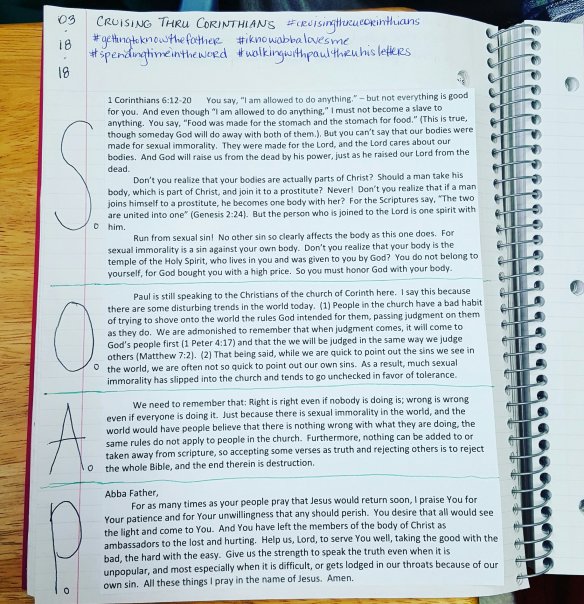 03 . 18 . 18
CRUISING THRU CORINTHIANS #cruisingthrucorinthians
#gettingtoknowthefather #iknowabbalovesme
#spendingtimeintheword #walkingwithpaulthruhisletters
S.
1 Corinthians 6:12-20 You say, "I am allowed to do anything." – but not everything is good
for you. And even though "I am allowed to do anything," I must not become a slave to
anything. You say, "Food was made for the stomach and the stomach for food." (This is true,
though someday God will do away with both of them.). But you can't say that our bodies were
made for sexual immorality. They were made for the Lord, and the Lord cares about our
bodies. And God will raise us from the dead by his power, just as he raised our Lord from the
dead.
Don't you realize that your bodies are actually parts of Christ? Should a man take his
body, which is part of Christ, and join it to a prostitute? Never! Don't you realize that if a man
joins himself to a prostitute, he becomes one body with her? For the Scriptures say, "The two
are united into one" (Genesis 2:24). But the person who is joined to the Lord is one spirit with
him.
Run from sexual sin! No other sin so clearly affects the body as this one does. For
sexual immorality is a sin against your own body. Don't you realize that your body is the
temple of the Holy Spirit, who lives in you and was given to you by God? You do not belong to
yourself, for God bought you with a high price. So you must honor God with your body.
O.
Paul is still speaking to the Christians of the church of Corinth here. I say this because
there are some disturbing trends in the world today. (1) People in the church have a bad habit
of trying to shove onto the world the rules God intended for them, passing judgment on them
as they do. We are admonished to remember that when judgment comes, it will come to
God's people first (1 Peter 4:17) and that the we will be judged in the same way we judge
others (Matthew 7:2). (2) That being said, while we are quick to point out the sins we see in
the world, we are often not so quick to point out our own sins. As a result, much sexual
immorality has slipped into the church and tends to go unchecked in favor of tolerance.
A.
We need to remember that: Right is right even if nobody is doing is; wrong is wrong
even if everyone is doing it. Just because there is sexual immorality in the world, and the
world would have people believe that there is nothing wrong with what they are doing, the
same rules do not apply to people in the church. Furthermore, nothing can be added to or
taken away from scripture, so accepting some verses as truth and rejecting others is to reject
the whole Bible, and the end therein is destruction.
P.
Abba Father,
For as many times as your people pray that Jesus would return soon, I praise You for
Your patience and for Your unwillingness that any should perish. You desire that all would see
the light and come to You. And You have left the members of the body of Christ as
ambassadors to the lost and hurting. Help us, Lord, to serve You well, taking the good with the
bad, the hard with the easy. Give us the strength to speak the truth even when it is
unpopular, and most especially when it is difficult, or gets lodged in our throats because of our
own sin. All these things I pray in the name of Jesus. Amen.